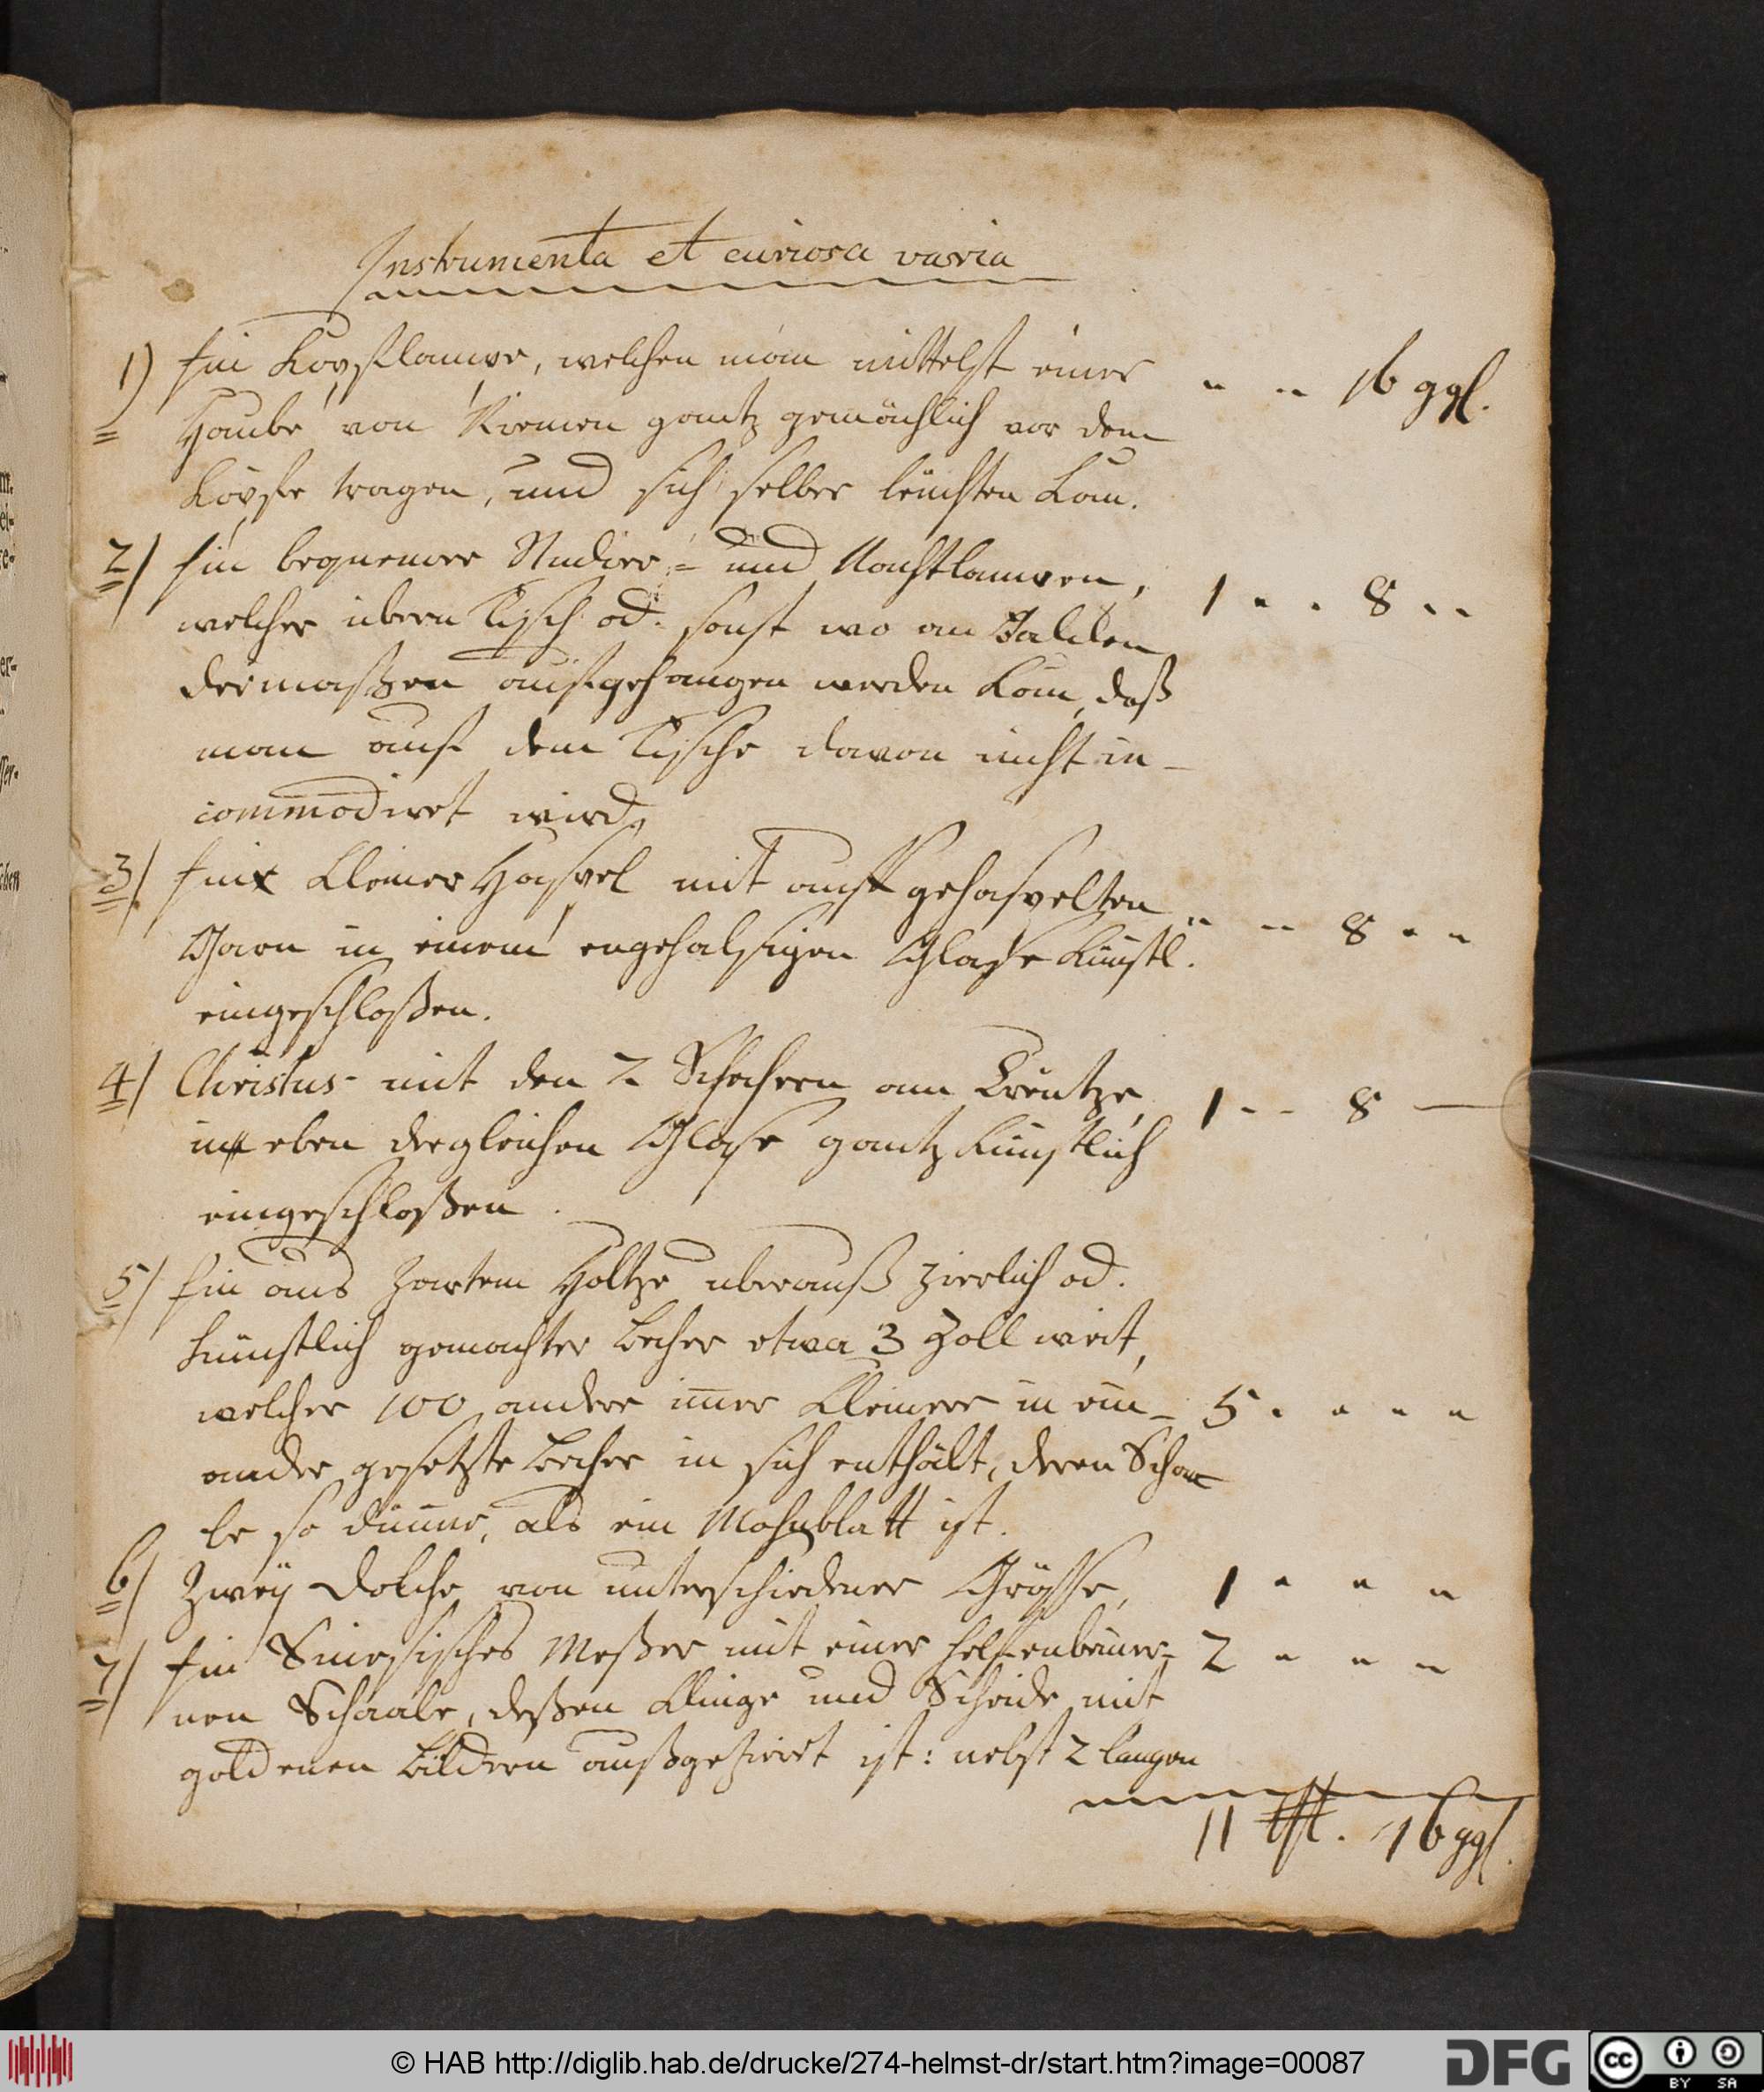 Instrumenta et curiosa varia
1) Ein Kopflampe, welchen man mittelst einer - - 16 ggl.
Haube von Riemen gantz gemächlich vor dem
Kopfe tragen, und sich selber leuchten kan.
2) Ein bequemer Studier= und Nachtlampen, 1 - - 8 - -
welcher übern Tisch od. sonst wo an Balcken
dermaßen aufgehangen werden kan, daß
man auf dem Tische davon nicht in-
commodiret wird.
3) Ein kleiner Haspel mit auff gehaspelten - - 8 - -
Garn in einem engehalsigen Glase künstl.
eingeschloßen.
4) Christus mit den 2 Schechern am Creutze, 1 - - 8 —
in eben dergleichen Glase gantz künstlich
eingeschloßen.
5) Ein aus zartem Holtze uberauß zierlich od.
künstlich gemachter Becher etwa 3 Zoll weit,
welcher 100 andere imer kleinere in ein- 5 - - - -
ander gesetzte Becher in sich enthält, deren Scha
le so dünne, als ein Mohnblatt ist.
6) Zwey Dolche von unterschiedener Grösse, 1 - - -
7) Ein Sinesisches Meßer mit einer helfenbeiner= 2 - - -
nen Schaale, deßen Klinge und Scheide mit
goldenen Bildern außgezieret ist: nebst 2 langen
11 thl. 16 ggl.
© HAB http://diglib.hab.de/drucke/274-helmst-dr/start.htm?image=00087
DFG
cc BY SA